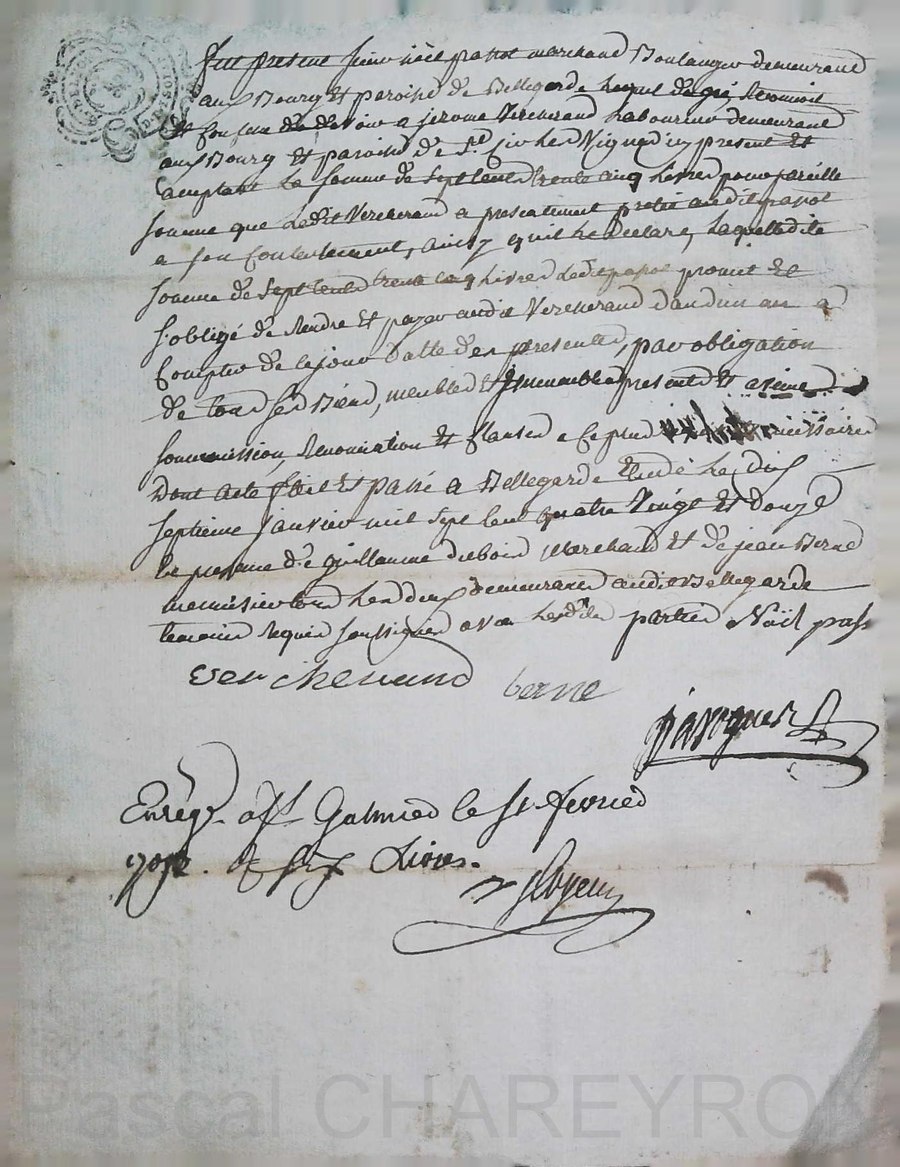 fut present sieur nöel papot marchand Boulanger demeurand
aux Bourg et paroisse de Bellegarde Lequel de gré Reconoit
et Confesse devoir a jerome Vercherand Laboureur demeurand
aux Bourg et paroisse de St. present et
acceptant La somme de sept cents trente cinq Livres pour pareille
somme que Ledit Vercherand a presentement pretée audit papot
a son Contentement, ainsy qu'il Le declare, Laquelle dite
somme de sept cents trente cinq Livres Ledit papot promet et
s'oblige de Rendre et payer audit Vercherand dans un an a
Compter de ce jour datte des presentes, par obligation
de tous ses Biens, meubles et immeubles presents et avenir
soummission, Renonciation et Clauses a ce necessaires
Dont acte fait et passé a Bellegarde Etude Le dix
septieme janvier mil sept cent quatre vingt et douze
en presence de guillaume dubois Marchand et de jean Berne
menuisier tous Les deux demeurands audit Bellegarde
temoins Requis soussignés avec Lesdites parties Nöel
verchenand berne
Enregr. a St. Galmier le fevrier
de livres.
Pascal CHAREYRON